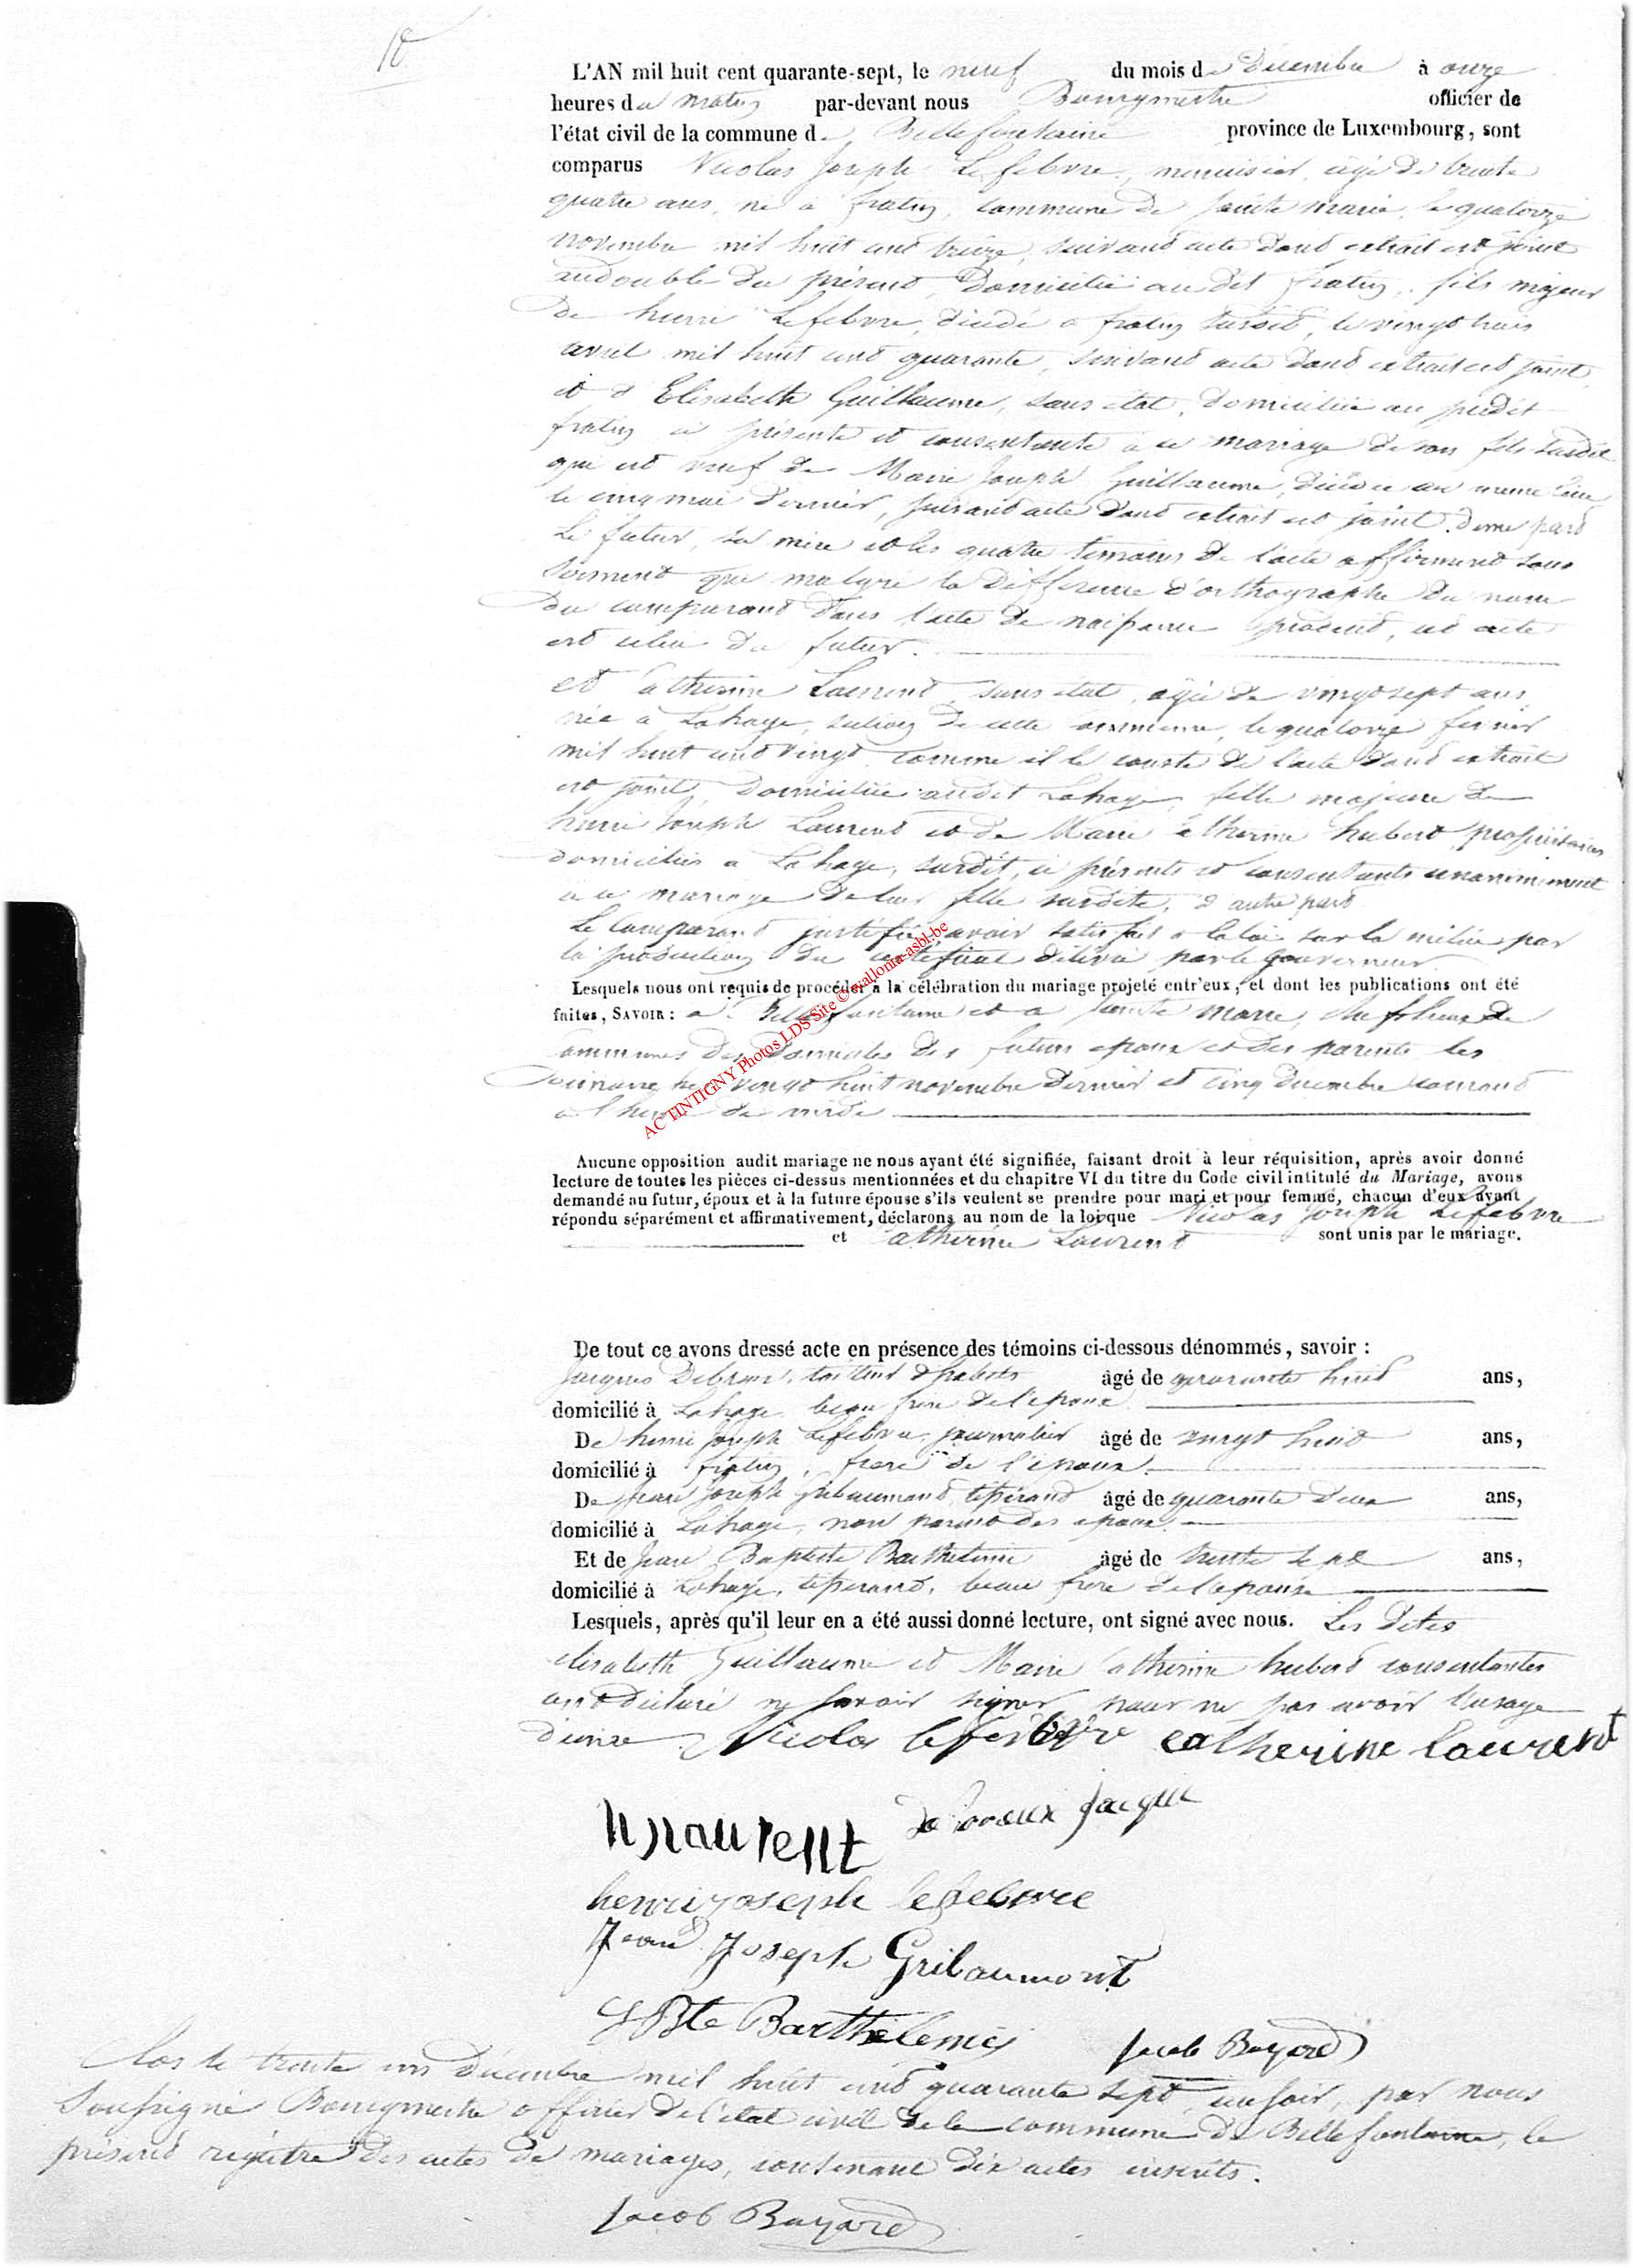 10
L'AN mil huit cent quarante-sept, le neuf du mois de Décembre à onze
heures du matin par-devant nous Bourgmestre officier de
l'état civil de la commune de Bellefontaine province de Luxembourg, sont
comparus Nicolas Joseph Lefebvre, menuisier, âgé de trente
quatre ans, né à fratin, commune de Sainte Marie, le quatorze
novembre mil huit cent treize, suivant acte dont extrait est joint
au double du présent, Domicilié au dit fratin, fils majeur
de henri Lefebvre, décédé à fratin susdit, le vingt trois
avril mil huit cent quarante, suivant acte dont extrait est joint,
et d'Elisabeth Guillaume, sans état, domiciliée au predit
fratin ci présente et consentante à ce mariage de son fils susdit
qui est veuf de Marie Joseph Guillaume, décédée au même lieu
le cinq mai dernier, suivant acte dont extrait est joint. d'une part
Le futur, sa mère et les quatre témoins de l'acte affirment sous
serment que malgré la différence d'orthographe du nom
du comparant dans l'acte de naissance produit, cet acte
est celui du futur.
et Catherine Laurent, sans état, âgée de vingt sept ans,
née à Lahage, section de cette commune, le quatorze février
mil huit cent vingt comme il le conste de l'acte dont extrait
est joint, Domiciliée audit Lahage, fille majeure de
henri Joseph Laurent et de Marie Catherine hubert, propriétaires
domiciliés à Lahage, susdit, ci présents et consentants unanimement
à ce mariage de leur fille susdite, d'autre part
Le Comparant justifie avoir satisfait à la loi sur la milice par
la production du certificat délivré par le gouverneur.
Lesquels nous ont requis de procéder à la célébration du mariage projeté entr'eux, et dont les publications ont été
faites, SAVOIR : à Bellefontaine et à Sainte Marie, chefs lieux de
communes des Domiciles des futurs epoux et des parents les
Dimanches vingt huit novembre dernier et cinq décembre courant
à l'heure de midi
ACTINTIGNY Photos LDS Site © wallonia-asbl-be
Aucune opposition audit mariage ne nous ayant été signifiée, faisant droit à leur réquisition, après avoir donné
lecture de toutes les pièces ci-dessus mentionnées et du chapitre VI du titre du Code civil intitulé du Mariage, avons
demandé au futur, époux et à la future épouse s'ils veulent se prendre pour mari et pour femme, chacun d'eux ayant
répondu séparément et affirmativement, déclarons au nom de la loi que Nicolas Joseph Lefebvre
et Catherine Laurent sont unis par le mariage.
De tout ce avons dressé acte en présence des témoins ci-dessous dénommés, savoir :
Jacques âgé de quarante huit ans,
domicilié à Lahage beau frère de l'epoux
De henri Joseph Lefebvre, journalier âgé de vingt huit ans,
domicilié à fratin, frère de l'epoux.
De Jean Joseph Gribaumont, tisserand âgé de quarante deux ans,
domicilié à Lahage, non parent des epoux.
Et de Jean Baptiste Barthelemi âgé de trente sept ans,
domicilié à Lahage, tisserand, beau frère de l'epouse
Lesquels, après qu'il leur en a été aussi donné lecture, ont signé avec nous. Les Dites
elisabeth Guillaume et Marie Catherine hubert consentantes
ont déclaré ne savoir signer pour ne pas avoir l'usage
Nicolas lefebvre catherine laurent
hjlaurent Jacque
henri joseph lefebvre
Jean Joseph Gribaumont
J Bte Barthelemi Jacob Bayard
Clos le trente un Décembre mil huit cent quarante sept, au soir, par nous
Soussigné Bourgmestre officier de l'état civil de la commune de Bellefontaine, le
présent régistre des actes de mariages, contenant dix actes inscrits.
Jacob Bayard